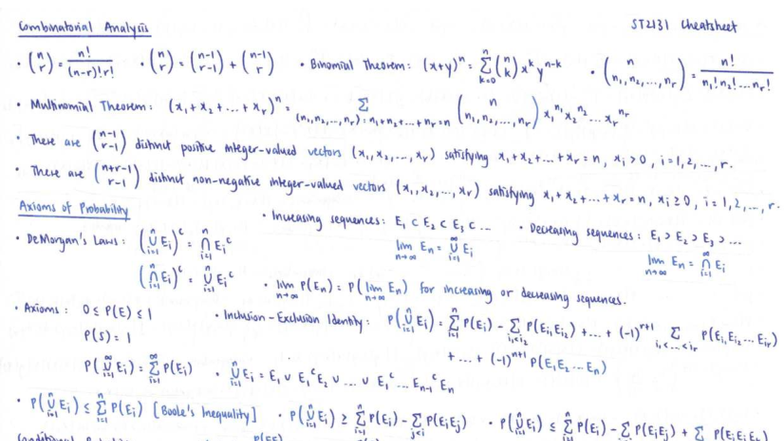 Combinatorial Analysis
ST2131 Cheatsheet
· (n r) = n!/((n-r)!r!) · (n r) = (n-1 r-1) + (n-1 r) · Binomial Theorem: (x+y)^n = Σ_{k=0}^{n} (n k) x^k y^{n-k} · (n n₁,n₂,...,n_r) = n!/(n₁!n₂!...n_r!)
· Multinomial Theorem: (x₁+x₂+...+x_r)^n = Σ_{(n₁,n₂,...,n_r):n₁+n₂+...+n_r=n} (n n₁,n₂,...,n_r) x₁^{n₁} x₂^{n₂} ... x_r^{n_r}
· There are (n-1 r-1) distinct positive integer-valued vectors (x₁,x₂,...,x_r) satisfying x₁+x₂+...+x_r=n, x_i>0, i=1,2,...,r.
· There are (n+r-1 r-1) distinct non-negative integer-valued vectors (x₁,x₂,...,x_r) satisfying x₁+x₂+...+x_r=n, x_i≥0, i=1,2,...,r.
Axioms of Probability
· Increasing sequences: E₁ ⊂ E₂ ⊂ E₃ ⊂ ... · Decreasing sequences: E₁ ⊃ E₂ ⊃ E₃ ⊃ ...
lim_{n→∞} E_n = ∪_{i=1}^{∞} E_i lim_{n→∞} E_n = ∩_{i=1}^{∞} E_i
· DeMorgan's Laws: (∪_{i=1}^{n} E_i)^c = ∩_{i=1}^{n} E_i^c
(∩_{i=1}^{n} E_i)^c = ∪_{i=1}^{n} E_i^c
· lim_{n→∞} P(E_n) = P(lim_{n→∞} E_n) for increasing or decreasing sequences.
· Axioms: 0 ≤ P(E) ≤ 1
P(S) = 1
P(∪_{i=1}^{∞} E_i) = Σ_{i=1}^{∞} P(E_i)
· Inclusion-Exclusion Identity: P(∪_{i=1}^{n} E_i) = Σ_{i=1}^{n} P(E_i) - Σ_{i₁<i₂} P(E_{i₁}E_{i₂}) + ... + (-1)^{r+1} Σ_{i₁<...<i_r} P(E_{i₁}E_{i₂}...E_{i_r})
+ ... + (-1)^{n+1} P(E₁E₂...E_n)
· ∪_{i=1}^{n} E_i = E₁ ∪ E₁^c E₂ ∪ ... ∪ E₁^c ... E_{n-1}^c E_n
· P(∪_{i=1}^{n} E_i) ≤ Σ_{i=1}^{n} P(E_i) [Boole's Inequality] · P(∪_{i=1}^{n} E_i) ≥ Σ_{i=1}^{n} P(E_i) - Σ_{j<i} P(E_iE_j) · P(∪_{i=1}^{n} E_i) ≤ Σ_{i=1}^{n} P(E_i) - Σ P(E_iE_j) + Σ P(E_iE_jE_k)